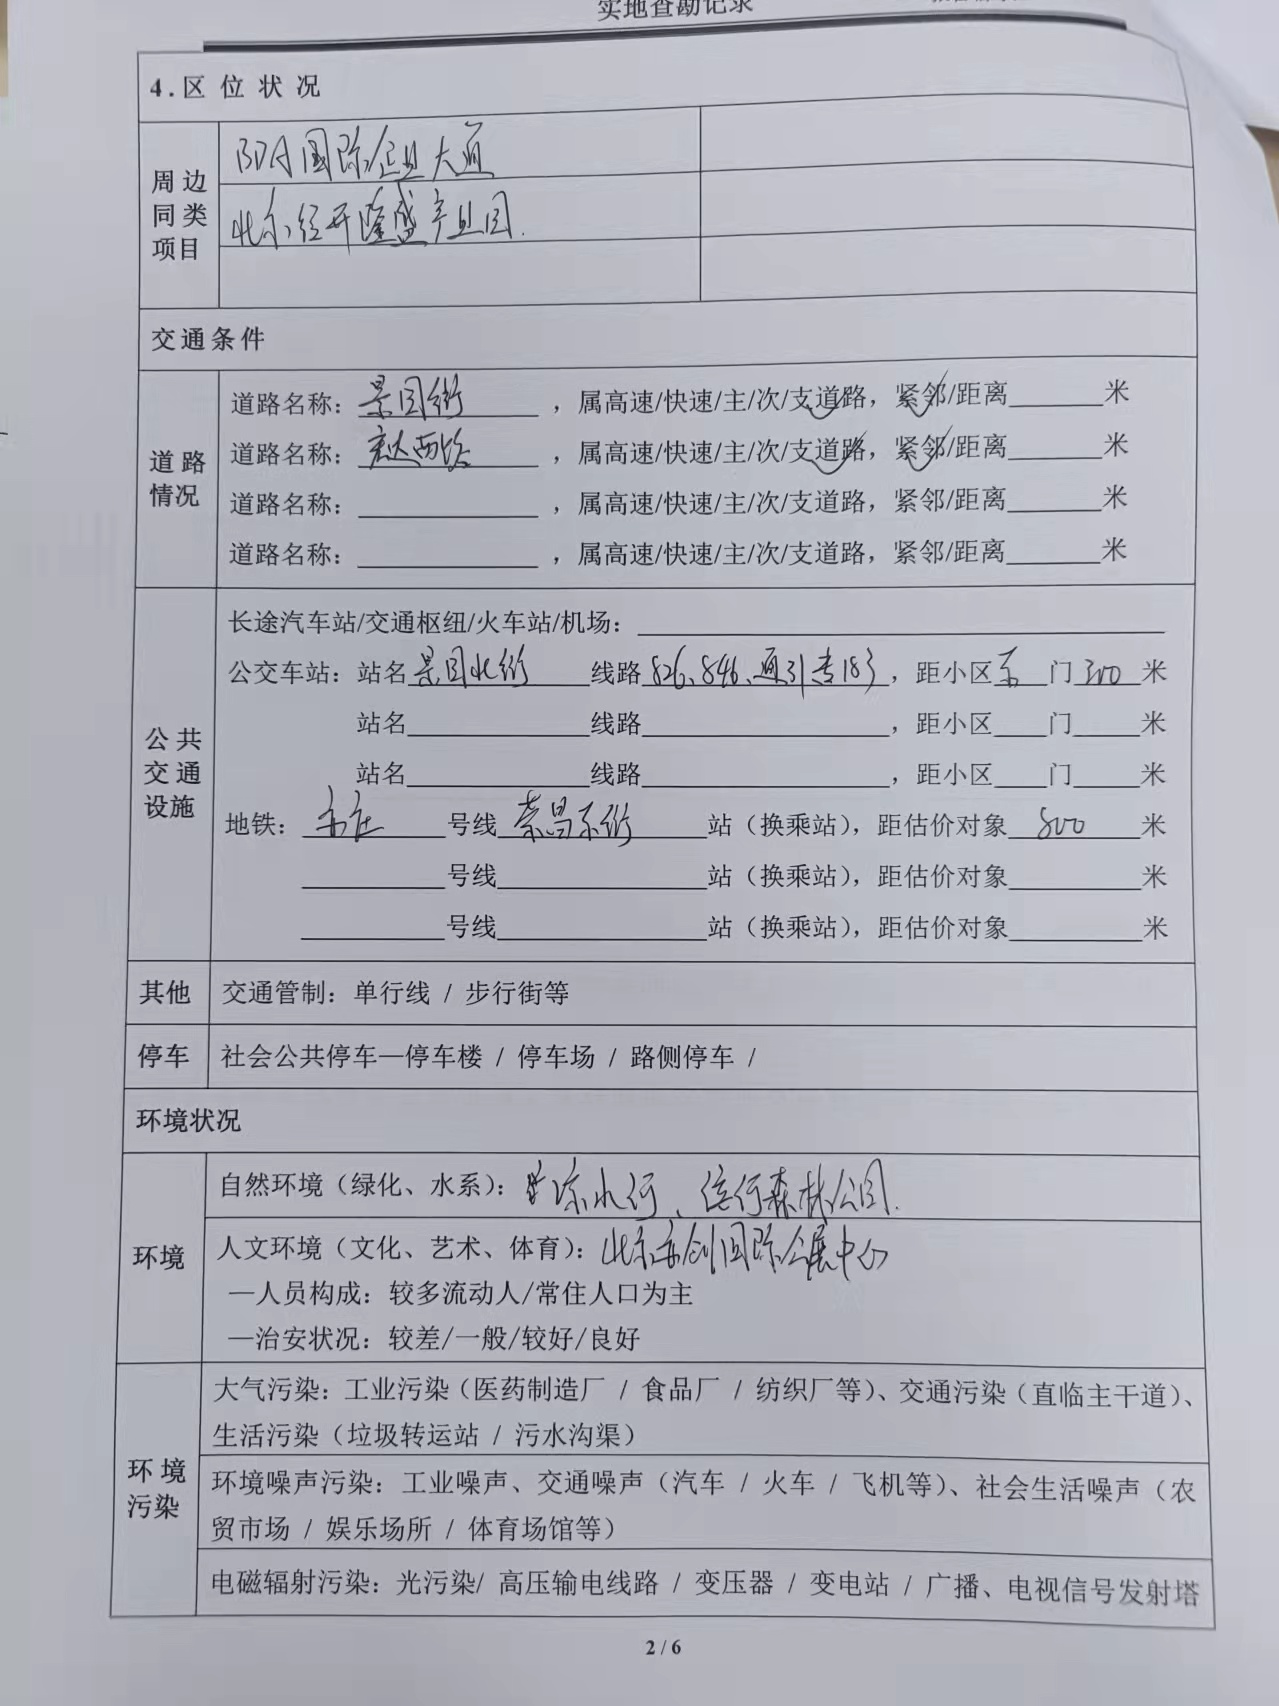 实地查勘记录
4.区位状况
周边同类项目
BDA国际企业大道
北京经开隆盛产业园.
交通条件
道路情况
道路名称：景园街，属高速/快速/主/次/支道路，紧邻/距离______米
道路名称：宏达西路，属高速/快速/主/次/支道路，紧邻/距离______米
道路名称：______，属高速/快速/主/次/支道路，紧邻/距离______米
道路名称：______，属高速/快速/主/次/支道路，紧邻/距离______米
公共交通设施
长途汽车站/交通枢纽/火车站/机场：______
公交车站：站名景园北街线路826、846、通引专183，距小区东门300米
站名______线路______，距小区____门____米
站名______线路______，距小区____门____米
地铁：亦庄号线荣昌东街站（换乘站），距估价对象800米
______号线______站（换乘站），距估价对象______米
______号线______站（换乘站），距估价对象______米
其他 交通管制：单行线 / 步行街等
停车 社会公共停车—停车楼 / 停车场 / 路侧停车 /
环境状况
环境
自然环境（绿化、水系）：凉水河、滨河森林公园.
人文环境（文化、艺术、体育）：北京亦创国际会展中心
—人员构成：较多流动人/常住人口为主
—治安状况：较差/一般/较好/良好
环境污染
大气污染：工业污染（医药制造厂 / 食品厂 / 纺织厂等）、交通污染（直临主干道）、
生活污染（垃圾转运站 / 污水沟渠）
环境噪声污染：工业噪声、交通噪声（汽车 / 火车 / 飞机等）、社会生活噪声（农
贸市场 / 娱乐场所 / 体育场馆等）
电磁辐射污染：光污染/ 高压输电线路 / 变压器 / 变电站 / 广播、电视信号发射塔
2 / 6